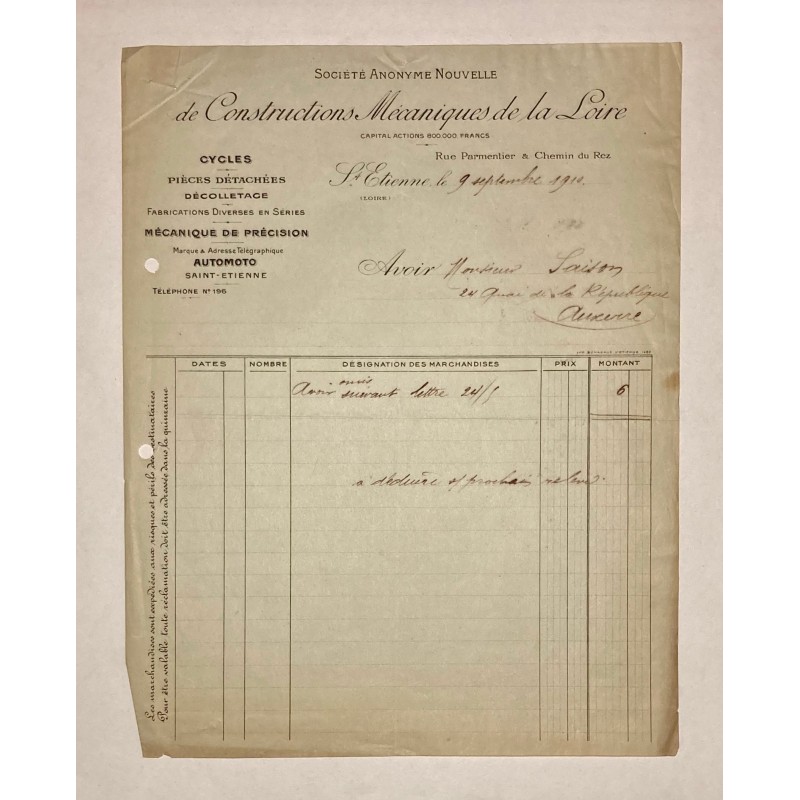 SOCIÉTÉ ANONYME NOUVELLE
de Constructions Mécaniques de la Loire
CAPITAL ACTIONS 800.000 FRANCS
Rue Parmentier & Chemin du Rez
St Etienne, le 9 septembre 1910
(LOIRE)
CYCLES
PIÈCES DÉTACHÉES
DÉCOLLETAGE
FABRICATIONS DIVERSES EN SÉRIES
MÉCANIQUE DE PRÉCISION
Marque & Adresse Télégraphique
AUTOMOTO
SAINT-ETIENNE
TÉLÉPHONE No 196
Avoir Monsieur Saison
24 Quai de la République
Auxerre
DATES NOMBRE DÉSIGNATION DES MARCHANDISES PRIX MONTANT
omis
Avoir suivant lettre 24/5 6
a déduire s/ prochain relevé.
Les marchandises sont expédiées aux risques et périls des destinataires
Pour être valable toute réclamation doit être adressée dans la quinzaine